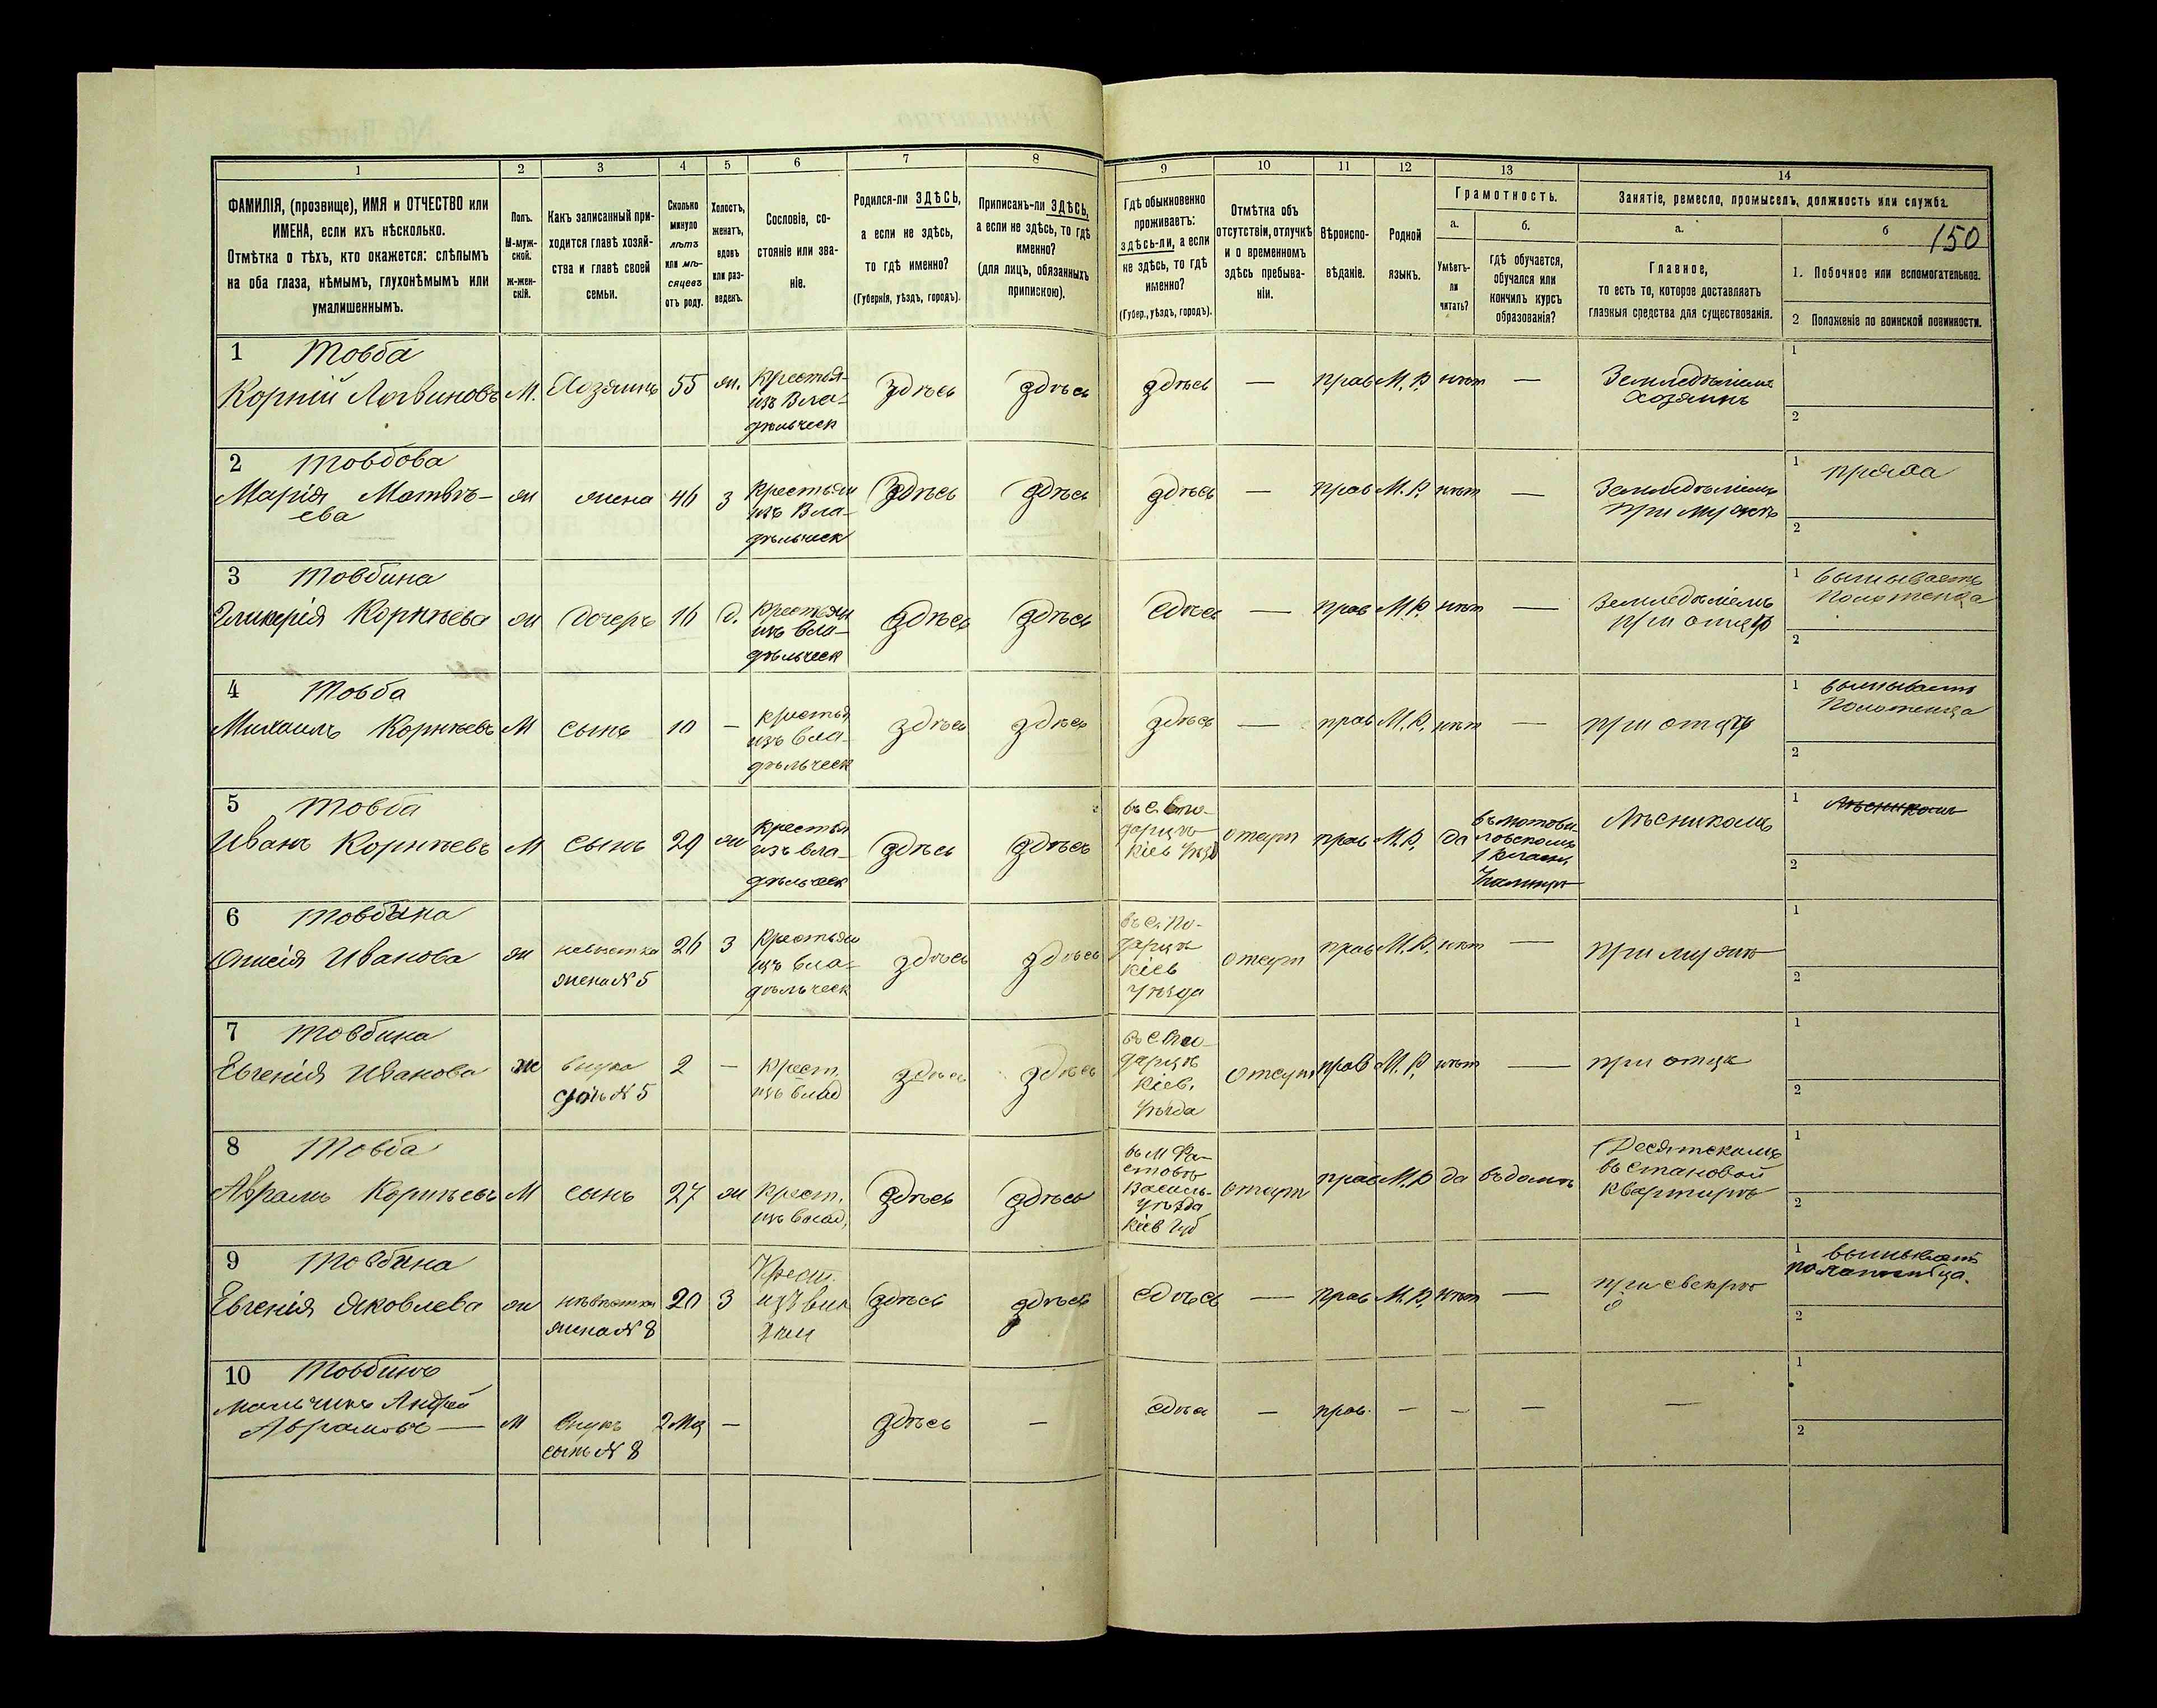 1 2 3 4 5 6 7 8 9 10 11 12 13 14
ФАМИЛІЯ, (прозвище), ИМЯ и ОТЧЕСТВО или
ИМЕНА, если ихъ нѣсколько.
Отмѣтка о тѣхъ, кто окажется: слѣпымъ
на оба глаза, нѣмымъ, глухонѣмымъ или
умалишеннымъ.
Полъ.
М-муж-
ской.
ж-жен-
скій.
Какъ записанный при-
ходится главѣ хозяй-
ства и главѣ своей
семьи.
Сколько
минуло
лѣтъ
или мѣ-
сяцевъ
отъ роду.
Холостъ,
женатъ,
вдовъ
или раз-
веденъ.
Сословіе, со-
стояніе или зва-
ніе.
Родился-ли ЗДѢСЬ,
а если не здѣсь,
то гдѣ именно?
(Губернія, уѣздъ, городъ).
Приписанъ-ли ЗДѢСЬ,
а если не здѣсь, то гдѣ
именно?
(для лицъ, обязанныхъ
припискою).
Гдѣ обыкновенно
проживаетъ:
здѣсь-ли, а если
не здѣсь, то гдѣ
именно?
(Губер., уѣздъ, городъ).
Отмѣтка объ
отсутствіи, отлучкѣ
и о временномъ
здѣсь пребыва-
ніи.
Вѣроиспо-
вѣданіе.
Родной
языкъ.
Грамотность.
а.
Умѣетъ-
ли
читать?
б.
гдѣ обучается,
обучался или
кончилъ курсъ
образованія?
Занятіе, ремесло, промыселъ, должность или служба.
а.
Главное,
то есть то, которое доставляетъ
главныя средства для существованія.
б
150
1. Побочное или вспомогательное.
2 Положеніе по воинской повинности.
1 Товба
Корній Логвиновъ М. Хозяинъ 55 ж. Крестья-
изъ Вла-
дѣльческ
Здѣсь здѣсь здѣсь — прав М. Р. нѣт —
Земледѣлiемъ
Хозяинъ
1
2
2 Товбова
Марія Матвѣ-
ева
ж жена 46 З Крестьян
изъ Вла-
дѣльческ
Здѣсь здѣсь здѣсь — прав М. Р. нѣт —
Земледѣлiемъ
при мужѣ
1 пряха
2
3 Товбина
Гликерія Корнѣева ж дочерь 16 д. Крестьян
изъ вла-
дѣльческ
здѣсь здѣсь сдѣсь — прав М. Р. нѣт —
Земледѣліемъ
при отцѣ
1 вышываетъ
Полотенца
2
4 Товба
Михаилъ Корнѣевъ М сынъ 10 — крестья
изъ вла-
дѣльческ
здѣсь здѣсь здѣсь — прав М. Р. нѣт — при отцѣ
1 вышываетъ
Полотенца
2
5 Товба
Иванъ Корнѣевъ М сынъ 29 ж Крестья
изъ вла-
дѣльческ
здѣсь здѣсь
Кіев Уѣзд
отсут прав М. Р. да
Лѣсникомъ
1 Лѣсникомъ
2
6 Товбина
Онисія Иванова ж невѣстка
жена N 5
26 З Крестьян
изъ вла-
дѣльческ
здѣсь здѣсь
Кіев
Уѣзда
отсут прав М. Р. нѣт — при мужѣ
1
2
7 Товбина
Евгенія Иванова ж внука
дочь N 5
2 — Крест.
изъ влад
здѣсь здѣсь
Кіев.
Уѣзда
отсут прав М. Р. нѣт — при отцѣ
1
2
8 Товба
Аврамъ Корнѣевъ М сынъ 27 ж Крест.
изъ влад.
здѣсь здѣсь
въ М Фа-
стовѣ
Василь-
Уѣзда
Кіев Губ
отсут прав М. Р. да въ домѣ
Десятскимъ
въ становой
квартирѣ
1
2
9 Товбина
Евгенія Яковлева ж невѣстка
жена N 8
20 З Крест.
изъ вла
здѣсь здѣсь сдѣсь — прав М. Р. нѣт — при свекрѣ
1 вышываетъ
2
10 Товбинъ
мальчикъ Андрей
Аврамовъ —
М Внукъ
сынъ N 8
2 мц — здѣсь — сдѣсь — прав. — — — —
1
2